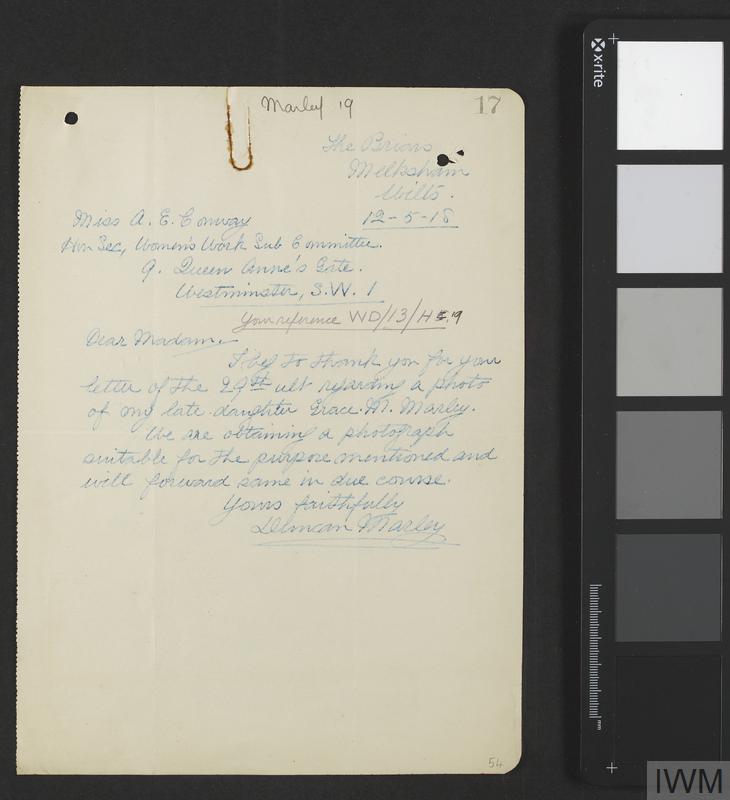 Marley 19
17
The Briars
Melksham
Wilts.
12-5-18
Miss A. E. Conway
Hon Sec, Women's Work Sub Committee.
9. Queen Anne's Gate.
Westminster, S.W. 1
Your reference WD/13/H 19
Dear Madam.
I beg to thank you for your
letter of the 29th ult regarding a photo
of my late daughter Grace. M. Marley.
We are obtaining a photograph
suitable for the purpose mentioned and
will forward same in due course.
Yours faithfully
Marley
54
x-rite
mm
IWM